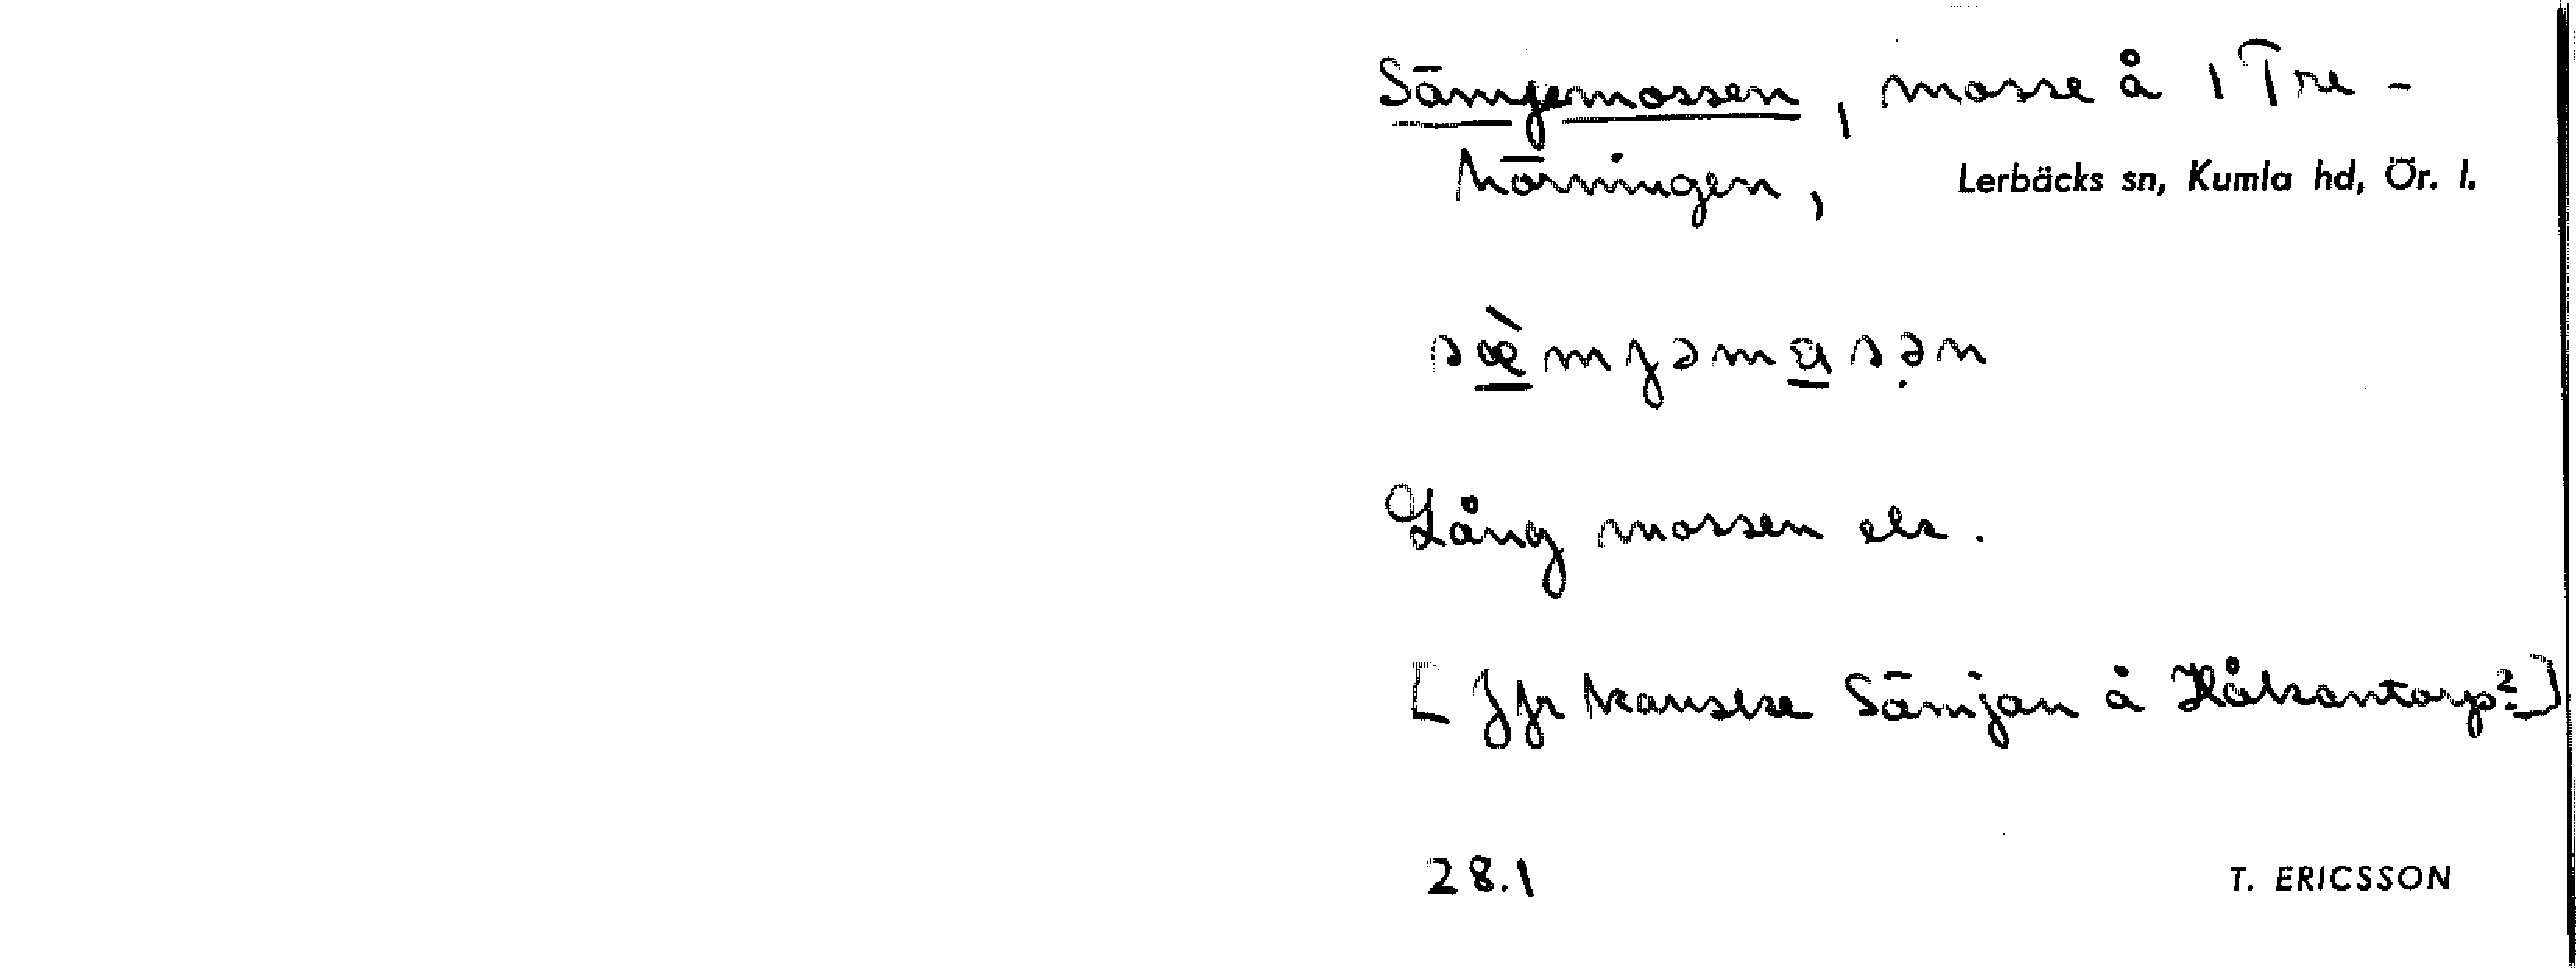 Sämjemossen, mosse å 1 Tre-
körningen, Lerbäcks sn, Kumla hd, Ör. l.
sæ̀mjəmasən
Lång mossen els.
[Jfr kanske Sämjan å Håkantorp?]
28.1 T. ERICSSON